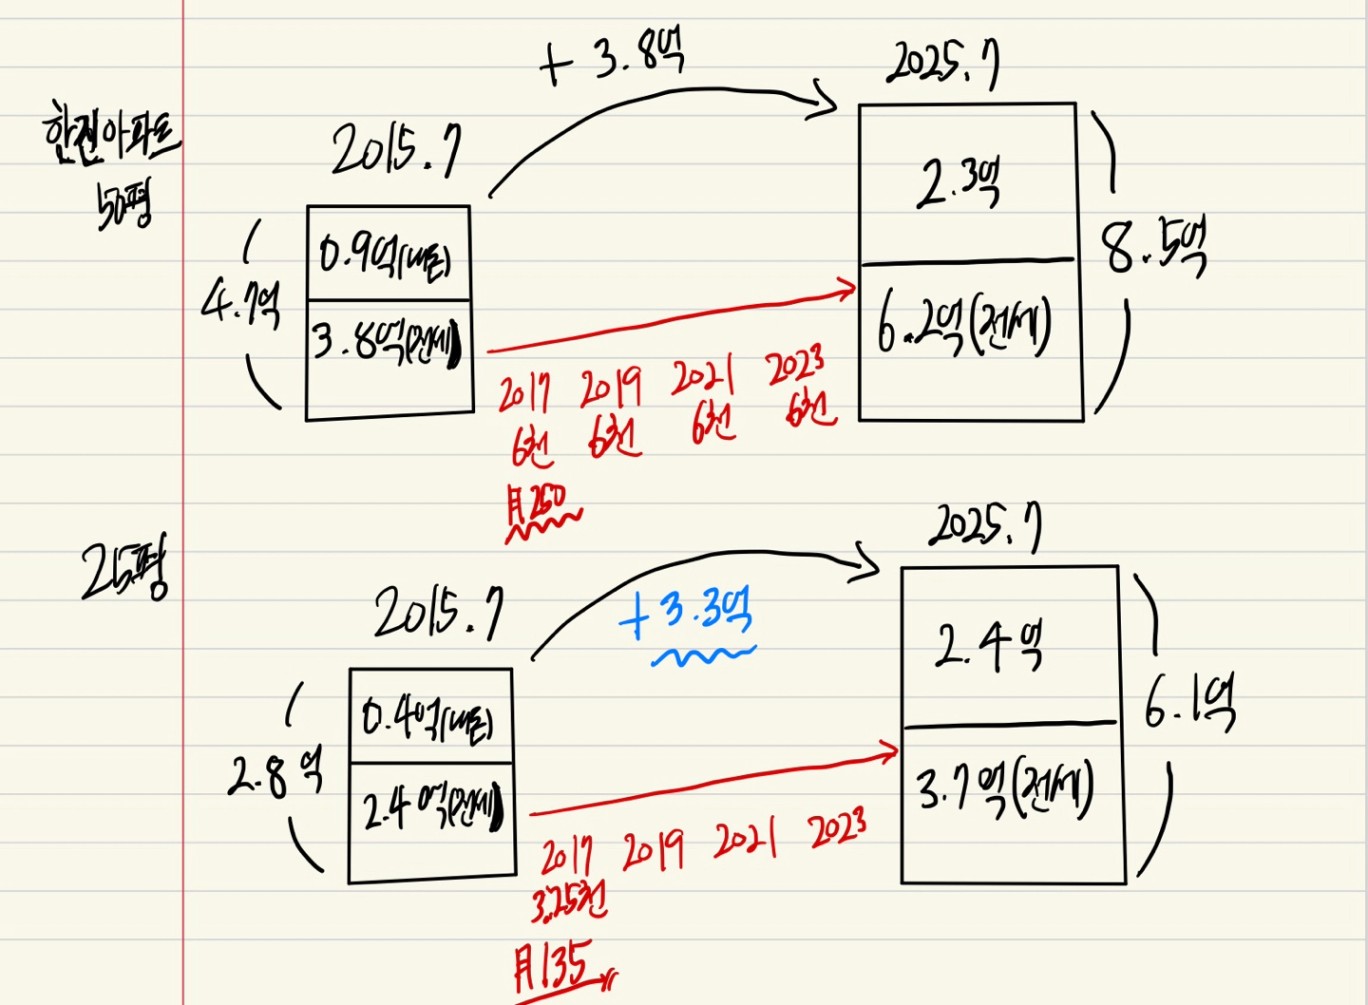 한진아파트
50평
2015.7
+ 3.8억
2025.7
4.7억
0.9억(매매)
3.8억(전세)
2.3억
6.2억(전세)
8.5억
2017 2019 2021 2023
6천 6천 6천 6천
月250
25평
2015.7
+ 3.3억
2025.7
2.8억
0.4억
2.4억(전세)
2.4억
3.7억(전세)
6.1억
2017 2019 2021 2023
3.25천
月135